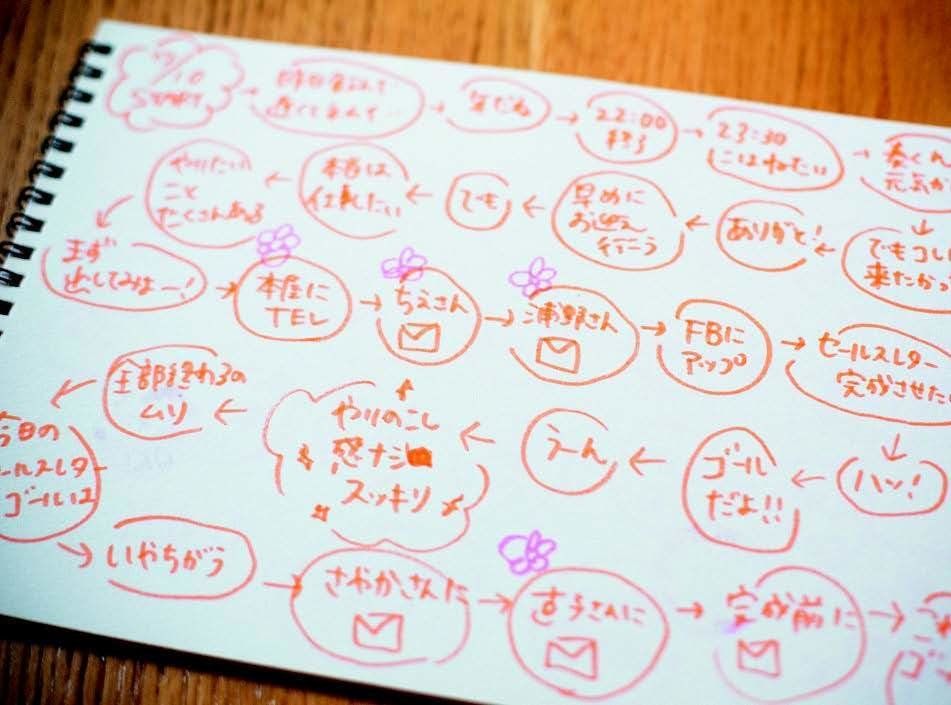 START
年だね
22:00
終了
23:30
にはねたい
春くん
元気か
でもコレ
来たかっ
ありがと!
早めに
お迎え
行こう
でも
本当は
仕事したい
やりたい
こと
たくさんある
まず
出してみよー!
本屋に
TEL
ちえさん
浦野さん
FBに
アップ
セールスレター
完成させたい
ハッ!
ゴール
だよ!!
うーん
やりのこし
感ナシ
スッキリ
全部終わるの
ムリ
今日の
ールスレター
ゴールは
いやちがう
さやかさんに
直子さんに
完成前に